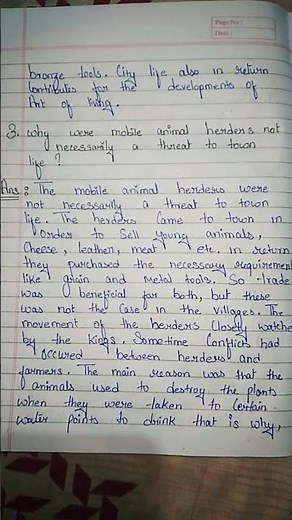 Page No :
Date :
bronze tools. City life also in return
contributes for the developments of
Art of king.
3. why were mobile animal herders not
necessarily a threat to town
life ?
Ans : The mobile animal herders were
not necessarily a threat to town
life. The herders Came to town in
order to Sell young animals,
Cheese, leather, meat etc. in return
they purchased the necessary requirement
like grain and metal tools. So trade
was beneficial for both, but these
was not the Case in the villages. The
movement of the herders Closely watche
by the kings. Sometime Conflicts had
accured between herders and
farmers. The main reason was that the
animals used to destroy the plants
when they were taken to Certain
water points to drink that is why,